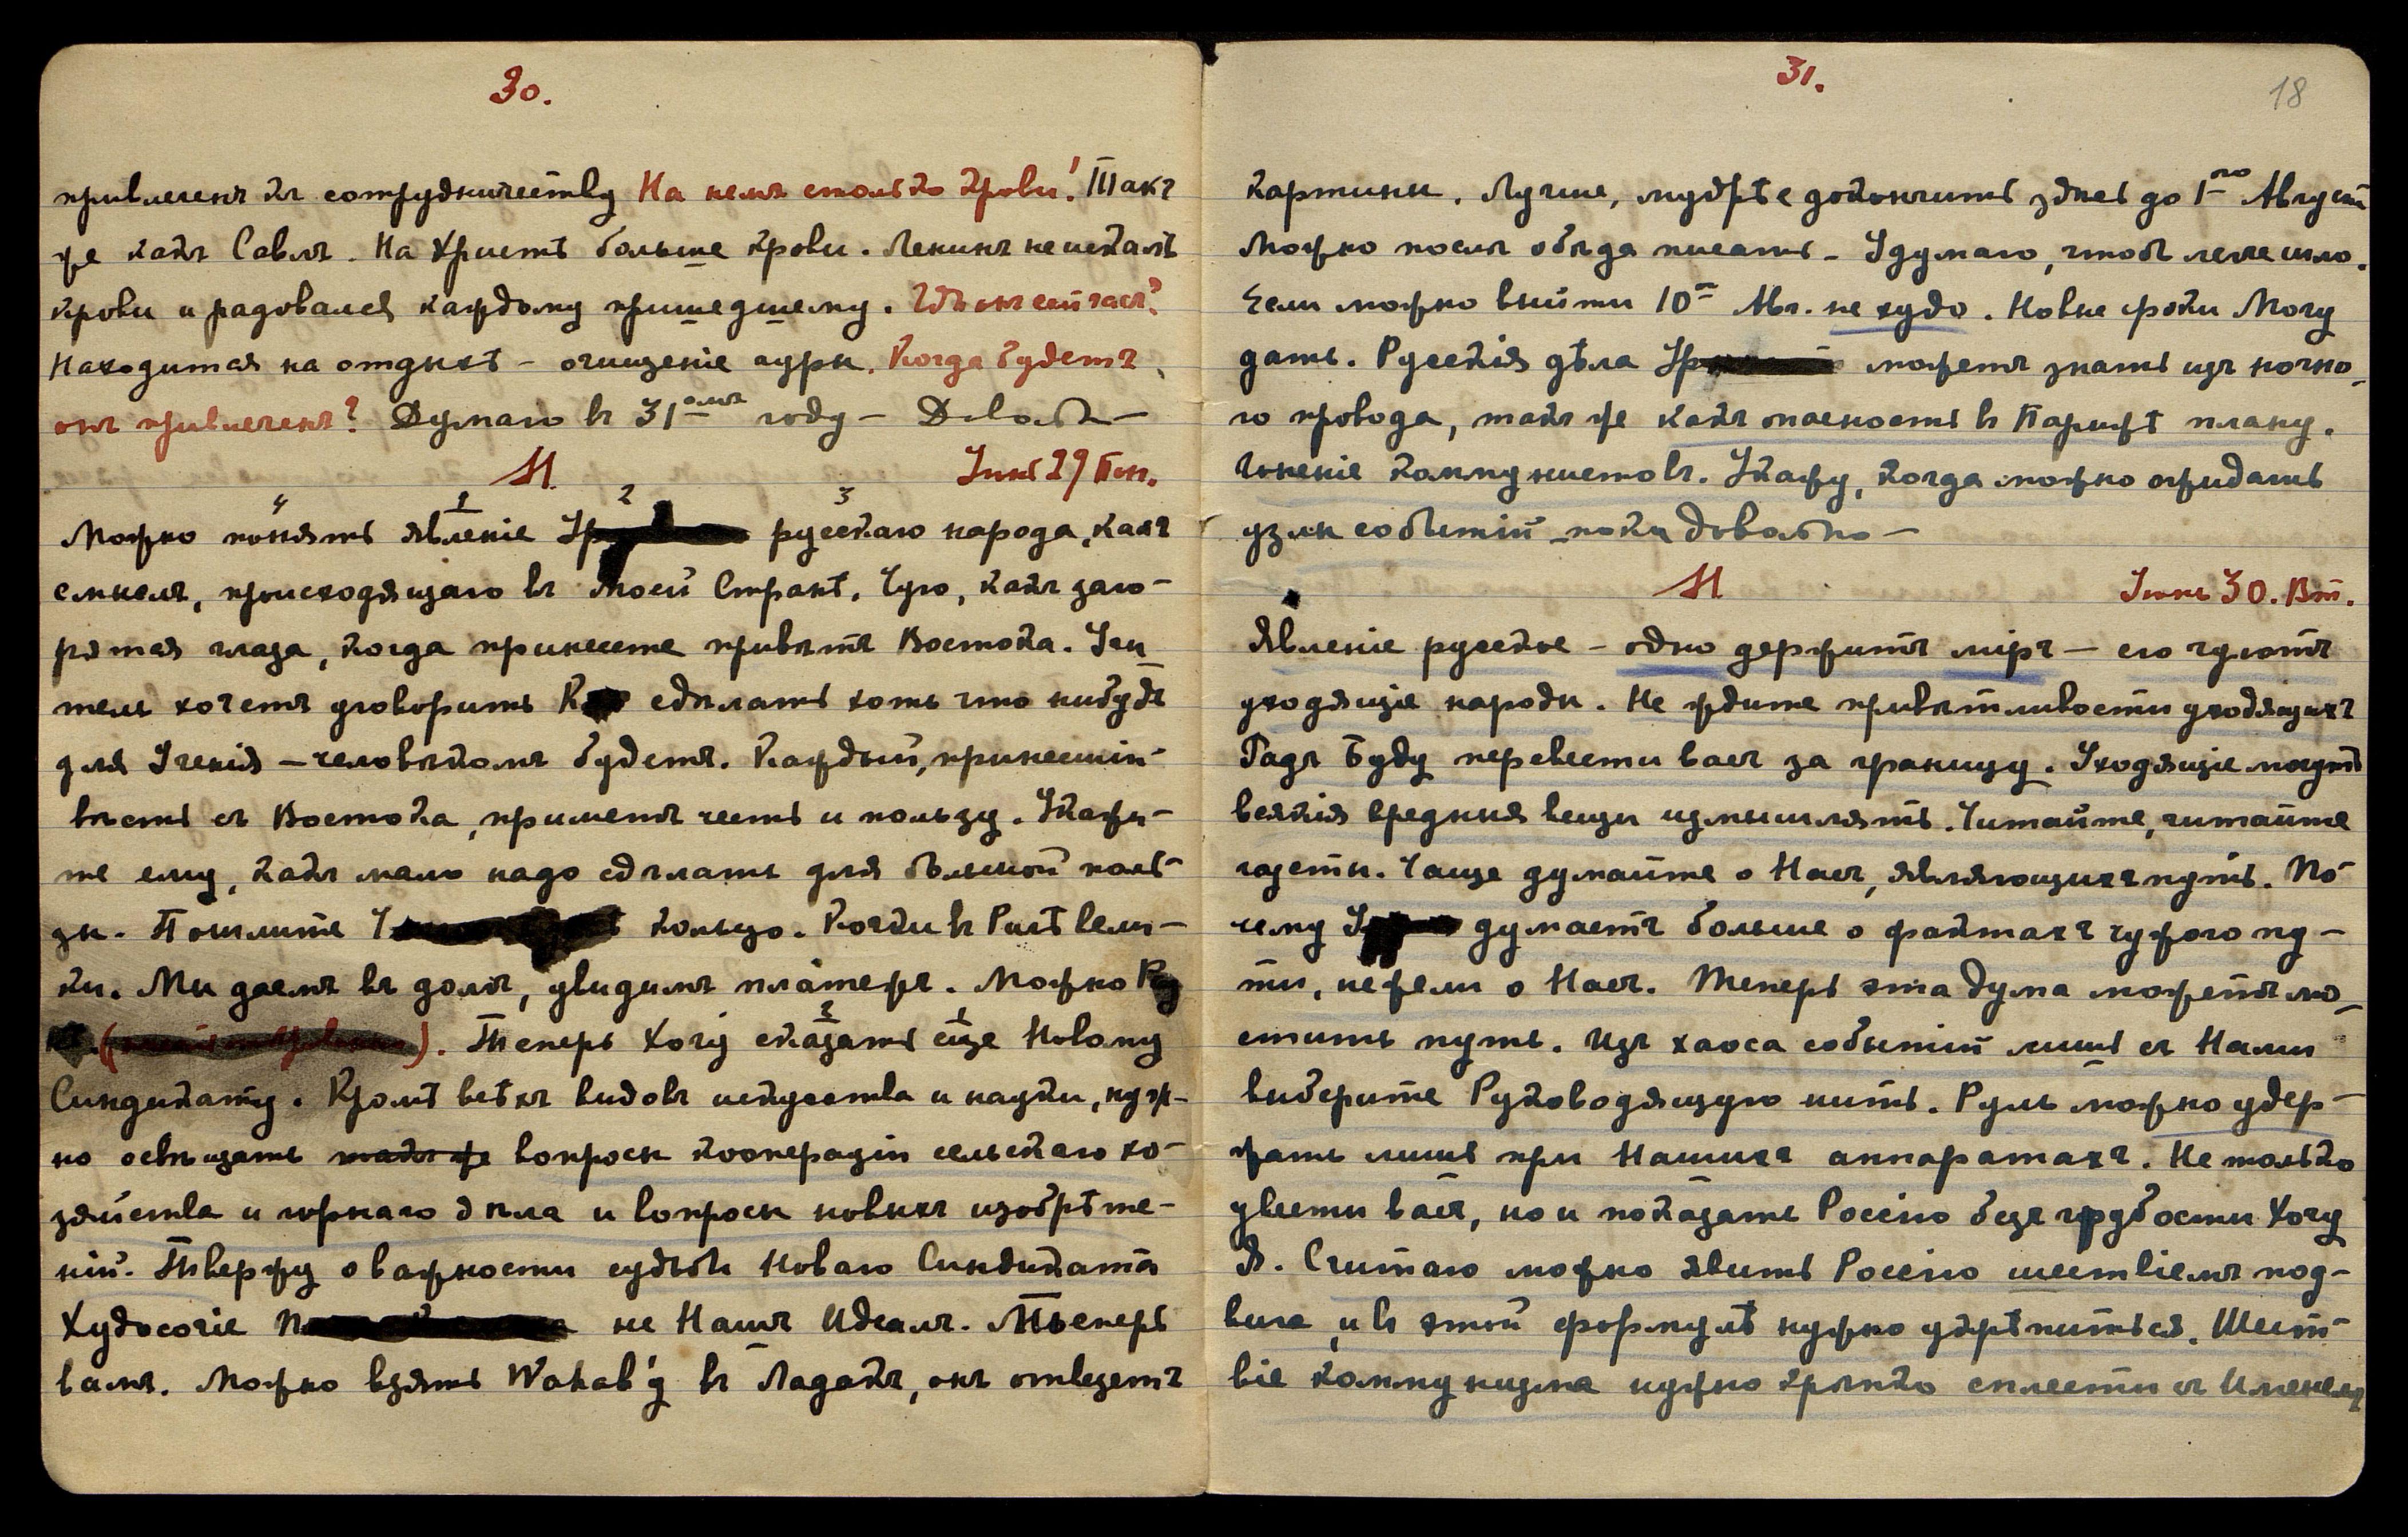 30.
привлеченъ къ сотрудничеству На немъ столько крови! Такъ
же какъ Савлъ. На Христѣ больше крови. Ленинъ не искалъ
крови и радовался каждому пришедшему. Гдѣ онъ сейчасъ?
Находится на отдыхѣ – очищеніе ауры. Когда будетъ
онъ привлеченъ? Думаю въ 31омъ году – Довольно –
М. Іюнь 29 Пон.
4 1 2 3
Можно понять явленіе Ур русскаго народа, какъ
смыслъ, происходящаго въ Моей Странѣ. Чую, какъ заго-
рятся глаза, когда принесете привѣтъ Востока. Учи
тель хочетъ уговорить сдѣлать хоть что нибудь
для Ученія – человѣкомъ будетъ. Каждый, принесшій
вѣсть съ Востока, приметъ честь и пользу. Укажи-
те ему, какъ мало надо сдѣлать для большой поль-
зы. Пошлите кольцо. Кочки въ Ригѣ вели-
ки. Мы даемъ въ долгъ, увидимъ платежъ. Можно
2 1
Теперь Хочу сказать еще Новому
Синдикату. Кромѣ всѣхъ видовъ искусства и науки, нуж-
но освѣщать также вопросы коопераціи сельскаго хо-
зяйства и горнаго дѣла и вопросы новыхъ изобрѣте-
ній. Твержу о важности судьбы Новаго Синдиката
Худосочіе не Нашъ Идеалъ. Теперь
вамъ. Можно взять Wahab'у въ Ладакъ, онъ отвезетъ
31.
18
картины. Лучше, мудрѣе докончить здѣсь до 1го Августа
Можно послѣ обѣда писать – Удумаю, чтобъ легче шло.
Если можно выйти 10го Авг. не худо. Новые сроки Могу
дать. Русскія дѣла Ур можетъ знать изъ ночно-
го провода, такъ же какъ опасность въ Парижѣ плану.
Гоненіе коммунистовъ. Укажу, когда можно ожидать
узлы событій – пока довольно –
М Іюнь 30. Вт.
Явленіе русское – одно держитъ міръ – его чуютъ
уходящіе народы. Не ждите привѣтливости уходящихъ
Радъ Буду перевести васъ за границу. Уходящіе могутъ
всякія вредныя вещи измышлять. Читайте, читайте
газеты. Чаще думайте о Насъ, являющихъ путь. По-
чему думаетъ больше о фактахъ чужого пу-
ти, нежели о Насъ. Теперь эта дума можетъ мо-
стить путь. Изъ хаоса событій лишь съ Нами
выберите Руководящую нить. Руль можно удер-
жать лишь при Нашихъ аппаратахъ. Не только
увести васъ, но и показать Россію безъ грубости Хочу
Я. Считаю можно явить Россію шествіемъ под-
вига, и въ этой формулѣ нужно укрѣпиться. Шест-
віе коммунизма нужно крѣпко сплести съ Именемъ